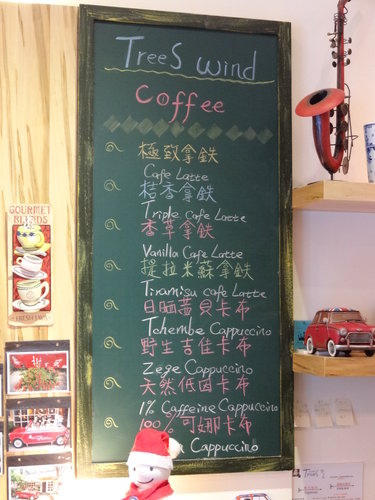 TreeS wind
Coffee
極致拿鉄
Cafe Latte
桔香拿鉄
Triple cafe Latte
香草拿鉄
Vanilla Cafe Latte
提拉米蘇拿鉄
Tiramisu cafe Latte
日晒茜貝卡布
Tchembe Cappuccino
野生吉佳卡布
Zege Cappuccino
天然低因卡布
1% Caffeine Cappuccino
100% 可娜卡布
Cappuccino
GOURMET
BLENDS